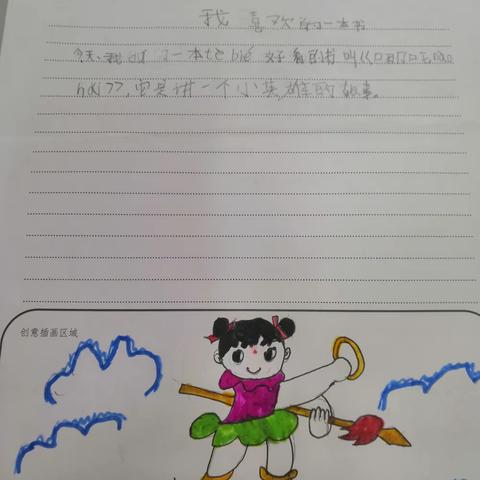 我喜欢的一本书
今天,我 了一本tè bié 好看的书叫《
hǎi》,它是讲一个小英雄的故事。
创意插画区域